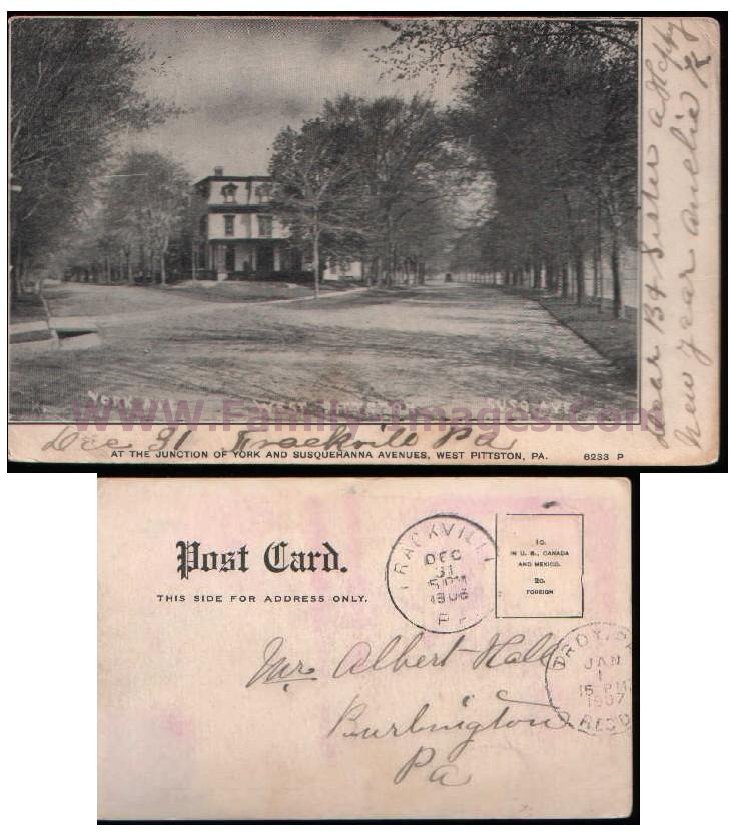 YORK
WEST
SUSQ. AVE.
www.Family-Images.Com
Dec 31 Frackvill Pa
AT THE JUNCTION OF YORK AND SUSQUEHANNA AVENUES, WEST PITTSTON, PA. 6233 P
Dear B & Sister a Happy
New year Amelia K
Post Card.
THIS SIDE FOR ADDRESS ONLY.
FRACKVILLE
DEC
31
5 PM
1906
PA
1c.
IN U. S., CANADA
AND MEXICO.
2c.
FOREIGN
Mr Albert Hall
Burlington
Pa
JAN
1
PM
1907
REC'D